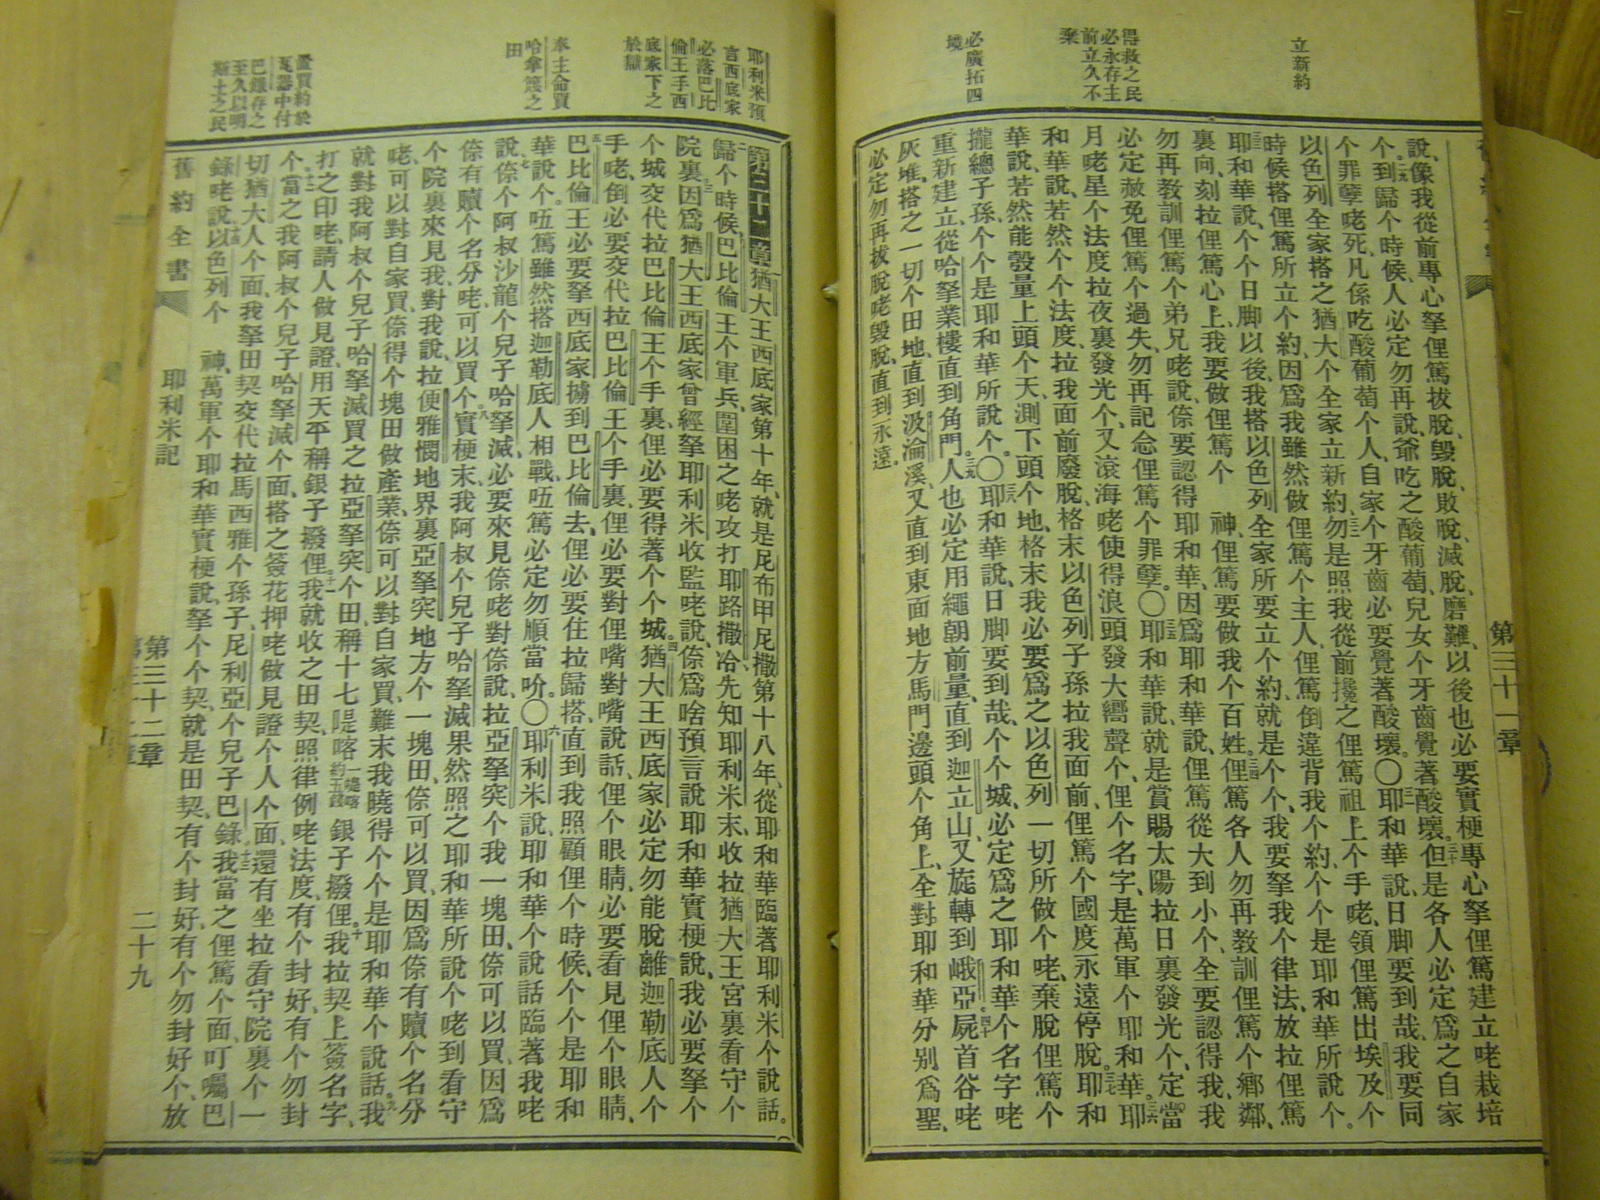 立新約
得救之民
必永存主
前立久不
棄
必廣拓四
境
第三十一章
說、像我從前專心拏俚篤拔脫、毀脫、敗脫、滅脫、磨難、以後也必要實梗專心拏俚篤建立咾栽培
個、到歸個時候、人必定勿再說、爺吃之酸葡萄、兒女个牙齒覺著酸壞、但是各人必定爲之自家
个罪孽咾死、凡係吃酸葡萄个人、自家个牙齒必要覺著酸壞。〇耶和華說、日脚要到哉、我要同
以色列全家搭之猶大个全家立新約、勿是照我從前攙之俚篤祖上个手咾、領俚篤出埃及个
時候搭俚篤所立个約、因爲我雖然做俚篤个主人、俚篤倒違背我个約、个个是耶和華所說个。
耶和華說、个个日脚以後、我搭以色列全家所要立个約、就是个个、我要拏我个律法、放拉俚篤
裏向、刻拉俚篤心上、我要做俚篤个 神、俚篤要做我个百姓。俚篤各人勿再教訓俚篤个鄉鄰、
勿再教訓俚篤个弟兄咾說、倷要認得耶和華、因爲耶和華說、俚篤從大到小个、全要認得我、我
必定赦免俚篤个過失、勿再記念俚篤个罪孽。〇耶和華說、就是賞賜太陽拉日裏發光个、定當
月咾星个法度拉夜裏發光个、又滾海咾使得浪頭發大嚮聲个、俚个名字、是萬軍个耶和華。耶
和華說、若然个个法度、拉我面前廢脫、格末以色列子孫拉我面前、俚篤个國度永遠停脫。耶和
華說、若然能彀量上頭个天、測下頭个地、格末我必要爲之以色列一切所做个咾、棄脫俚篤个
攏總子孫、个个是耶和華所說个。〇耶和華說、日脚要到哉、个个城、必定爲之耶和華个名字咾
重新建立、從哈拏業樓直到角門。人也必定用繩朝前量、直到迦立山、又旋轉到峨亞、屍首谷咾
灰堆搭之一切个田地、直到汲淪溪、又直到東面地方馬門邊頭个角上、全對耶和華分别爲聖、
必定勿再拔脫咾毀脫、直到永遠。
耶利米預
言西底家
必落巴比
倫王手西
底家下之
於獄
奉主命買
哈拿篾之
田
置買約於
瓦器中付
巴錄存之
至久以明
斯土之民
第三十二章 猶大王西底家第十年、就是尼布甲尼撒第十八年、從耶和華臨著耶利米个說話。
歸个時候巴比倫王个軍兵、圍困之咾攻打耶路撒冷、先知耶利米末、收拉猶大王宮裏看守个
院裏、因爲猶大王西底家曾經拏耶利米收監咾說、倷爲啥預言說、耶和華實梗說、我必要拏个
个城交代拉巴比倫王个手裏、俚必要得著个个城。猶大王西底家必定勿能脫離迦勒底人个
手咾、倒必要交代拉巴比倫王个手裏、俚必要對俚嘴對嘴說話、俚个眼睛、必要看見俚个眼睛、
巴比倫王必要拏西底家擄到巴比倫去、俚必要住拉歸搭、直到我照顧俚个時候、个个是耶和
華說个。唔篤雖然搭迦勒底人相戰、唔篤必定勿順當吤。〇耶利米說、耶和華个說話臨著我咾
說、倷个阿叔沙龍个兒子哈拏滅、必要來見倷咾對倷說、拉亞拏突个我一塊田、倷可以買、因爲
倷有贖个名分咾、可以買个實梗末、我阿叔个兒子哈拏滅、果然照之耶和華所說个咾、到看守
个院裏來見我、對我說、拉便雅憫地界裏、亞拏突地方个一塊田、倷可以買、因爲倷有贖个名分
咾、可以對自家買、倷得个塊田做產業、倷可以對自家買、難末我曉得个个是耶和華个說話。我
就對我阿叔个兒子哈拏滅、買之拉亞拏突个田、稱十七㖷喀 一㖷喀約五錢 銀子撥俚。我拉契上簽名字、
打之印咾、請人做見證、用天平稱銀子撥俚、我就收之田契、照律例咾法度、有个封好、有个勿封
个、當之我阿叔个兒子哈拏滅个面、搭之簽花押咾做見證个人个面、還有坐拉看守院裏个一
切猶大人个面、我拏田契交代拉馬西雅个孫子、尼利亞个兒子巴錄、我當之俚篤个面、叮囑巴
錄咾說、以色列个 神、萬軍个耶和華實梗說、拏个个契、就是田契、有个封好、有个勿封好个、放
舊約全書
耶利米記
第三十二章
二十九